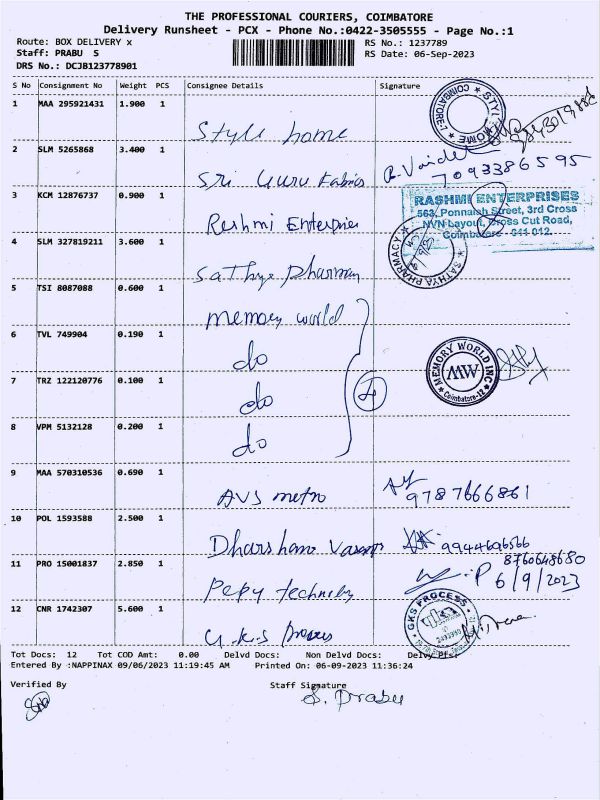 THE PROFESSIONAL COURIERS, COIMBATORE
Delivery Runsheet - PCX - Phone No.:0422-3505555 - Page No.:1
Route: BOX DELIVERY x RS No.: 1237789
Staff: PRABU S RS Date: 06-Sep-2023
DRS No.: DCJB123778901
S No Consignment No Weight PCS Consignee Details Signature
1 MAA 295921431 1.900 1 Style home
STYLE HOME COIMBATORE
2 SLM 5265868 3.400 1 Sri Guru Fabrics
7093386595
3 KCM 12876737 0.900 1 Rashmi Enterprises
RASHMI ENTERPRISES
563, Ponnaiah Street, 3rd Cross
NVN Layout, Cross Cut Road,
Coimbatore - 641 012.
4 SLM 327819211 3.600 1 Sathya Pharmacy
SATHYA PHARMACY
5 TSI 8087088 0.600 1 memory world
6 TVL 749904 0.190 1 do
MEMORY WORLD INC MW Coimbatore-12
7 TRZ 122120776 0.100 1 do
4
8 VPM 5132128 0.200 1 do
9 MAA 570310536 0.690 1 AVS metro
9787666861
10 POL 1593588 2.500 1 Dharshan
9944696566
11 PRO 15001837 2.850 1 Pepy
8760648680
6/9/2023
12 CNR 1742307 5.600 1 G.K.S process
GKS PROCESS
Tot Docs: 12 Tot COD Amt: 0.00 Delvd Docs: Non Delvd Docs:
Entered By :NAPPINAX 09/06/2023 11:19:45 AM Printed On: 06-09-2023 11:36:24
Verified By Staff Signature
S. Prabu